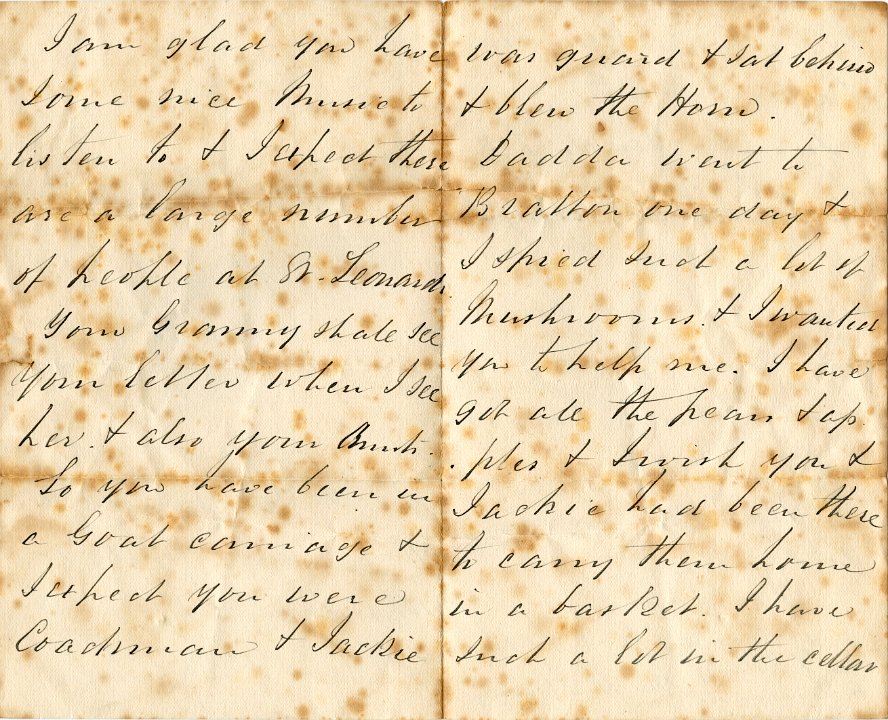 I am glad you have
some nice Music to
listen to & I expect there
are a large number
of people at St. Leonards
Your Granny shall see
your letter when I see
her. & also your Aunts.
So you have been in
a Goat carriage &
I expect you were
Coachman & Jackie
was guard & sat behind
& blew the Horn.
Dadda went to
Bratton one day &
I spied such a lot of
Mushrooms. & I wanted
you to help me. I have
got all the pears & ap
.ples & I wish you &
Jackie had been there
to carry them home
in a basket. I have
such a lot in the cellar